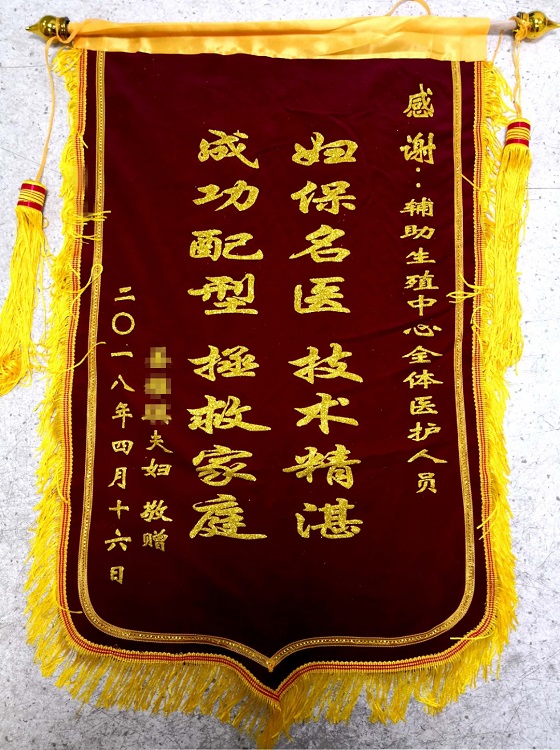 感谢：辅助生殖中心全体医护人员
妇保名医 技术精湛
成功配型 拯救家庭
夫妇 敬赠
二〇一八年四月十六日